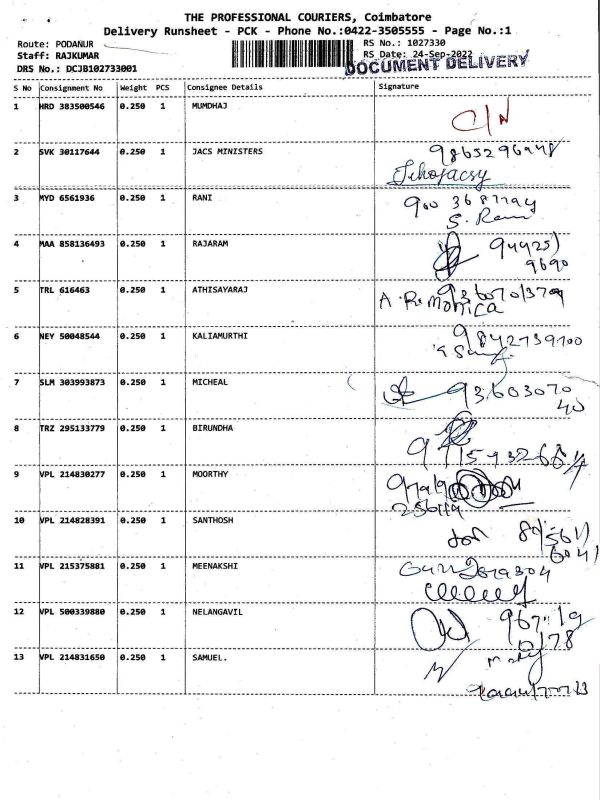 THE PROFESSIONAL COURIERS, Coimbatore
Delivery Runsheet - PCK - Phone No.:0422-3505555 - Page No.:1
Route: PODANUR
RS No.: 1027330
Staff: RAJKUMAR
RS Date: 24-Sep-2022
DRS No.: DCJB102733001
DOCUMENT DELIVERY
S No Consignment No Weight PCS Consignee Details Signature
1 HRD 383500546 0.250 1 MUMDHAJ
C/N
2 SVK 30117644 0.250 1 JACS MINISTERS
3 MYD 6561936 0.250 1 RANI
S. Rani
4 MAA 858136493 0.250 1 RAJARAM
5 TRL 616463 0.250 1 ATHISAYARAJ
A.R. Monica
6 NEY 50048544 0.250 1 KALIAMURTHI
9842739700
7 SLM 303993873 0.250 1 MICHEAL
93603070
40
8 TRZ 295133779 0.250 1 BIRUNDHA
9 VPL 214830277 0.250 1 MOORTHY
10 VPL 214828391 0.250 1 SANTHOSH
11 VPL 215375881 0.250 1 MEENAKSHI
12 VPL 500339880 0.250 1 NELANGAVIL
13 VPL 214831650 0.250 1 SAMUEL.